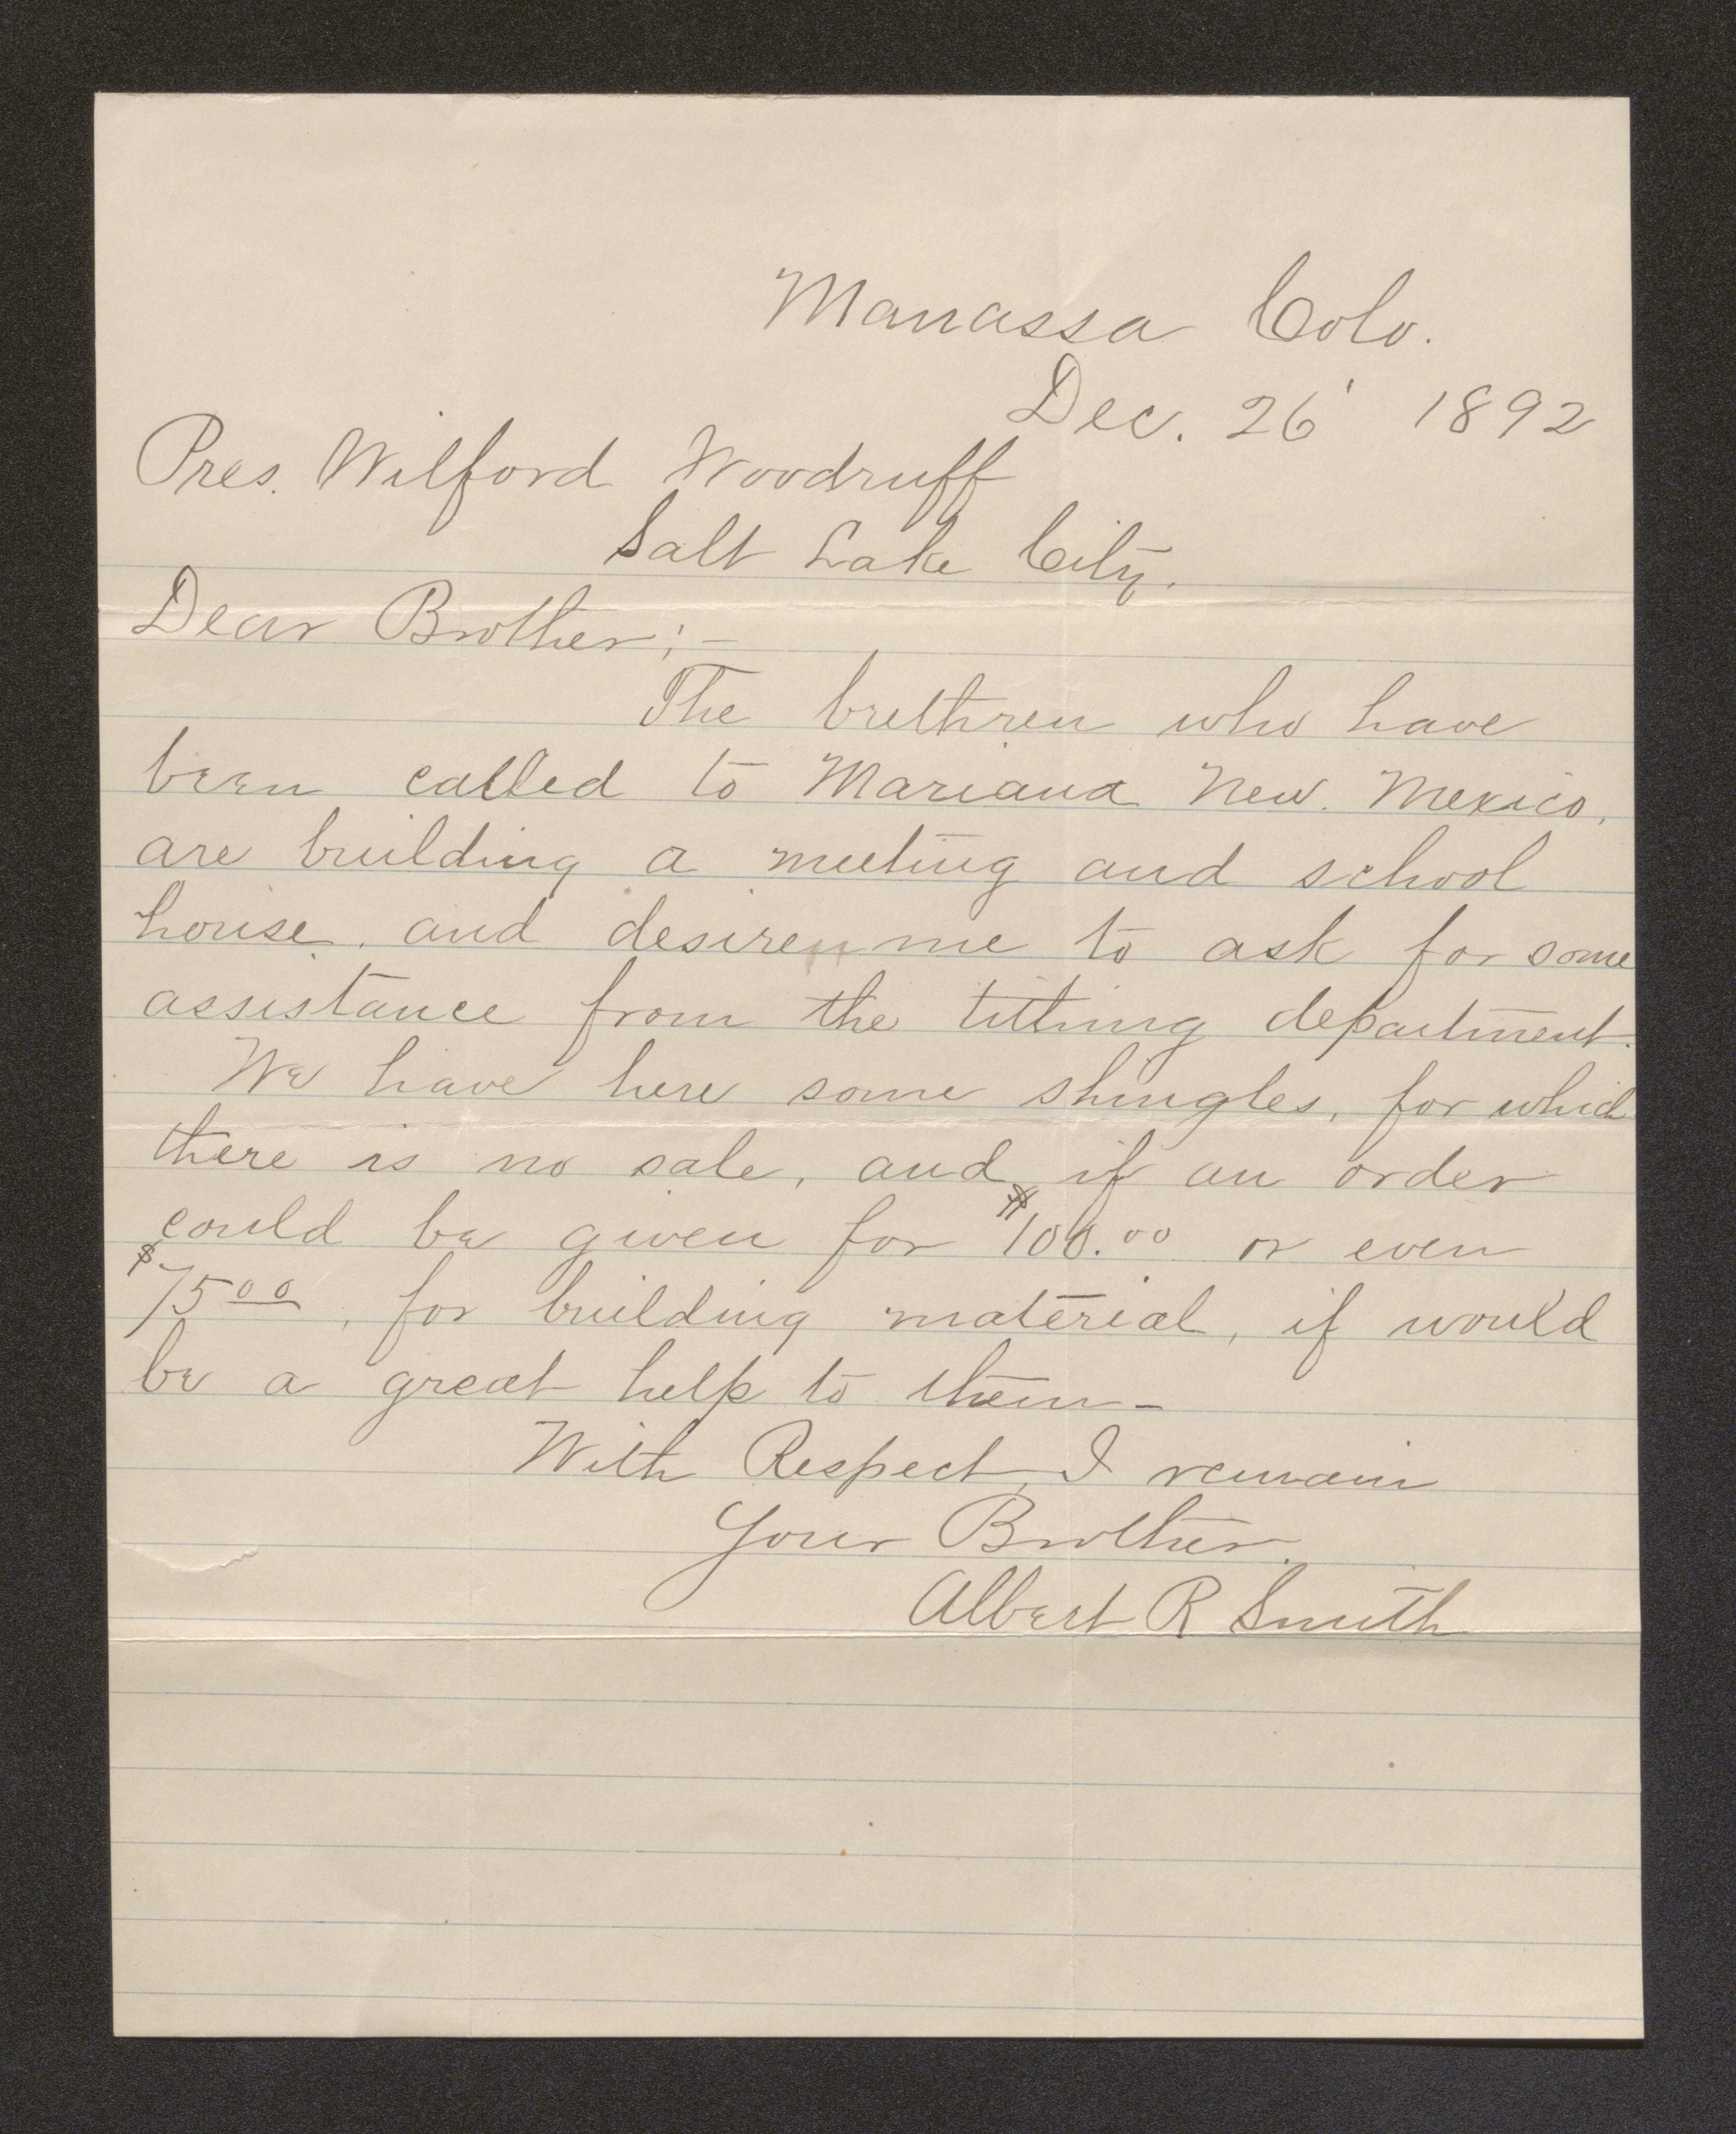 Manassa Colo.
Dec. 26' 1892
Pres. Wilford Woodruff
Salt Lake City.
Dear Brother;-
The brethren who have
been called to Mariana New. Mexico,
are building a meeting and school
house, and desire me to ask for some
assistance from the tithing department.
We have here some shingles, for which
there is no sale, and if an order
could be given for $100.00 or even
$75.00, for building material, if would
be a great help to them-
With Respect, I remain
Your Brother.
Albert R Smith